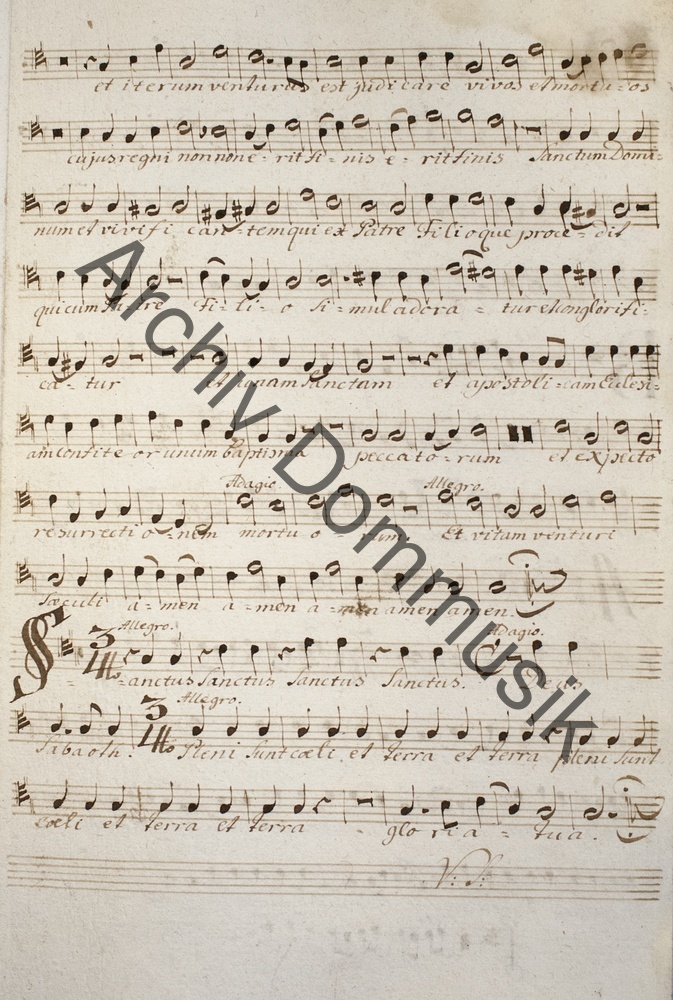 et iterum venturus est judicare vivos et mortu=os
cujus regni non non e=rit fi=nis e=rit finis Sanctum Domi=
num et vivifi can=tem qui ex Patre Filioque proce=dit
qui cum Patre Fi=li=o si=mul adora=tur et conglorifi=
ca=tur et unam Sanctam et apostoli=cam Eclesi=
am confiteor unum Baptisma peccato=rum et expecto
Adagio. Allegro.
resurrecti o=nem mortu o rum. Et vitam venturi
Sæculi a=men a=men a=men amen amen.
Allegro. Adagio.
S=anctus Sanctus Sanctus Sanctus. Deus
Allegro.
Sabaoth. Pleni Sunt cœli et terra et terra pleni Sunt
cœli et terra et terra glo ri a=tua.
V: S:
Archiv Dommusik